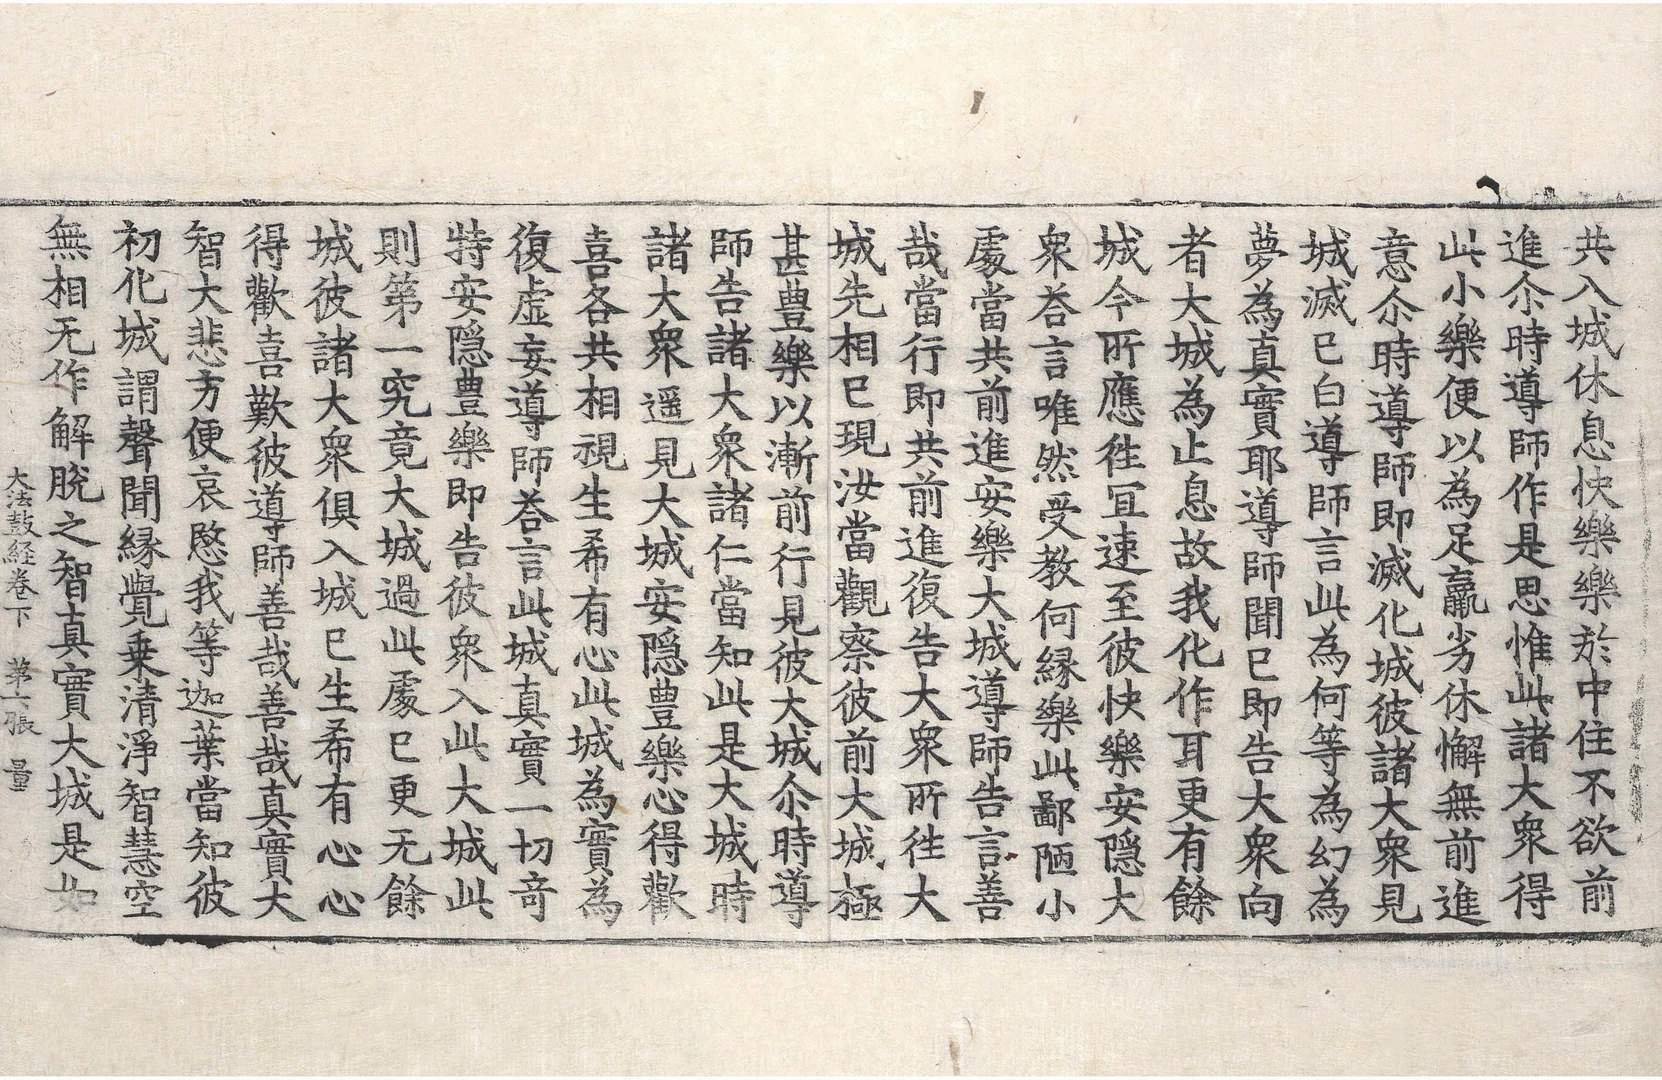 共入城休息快樂樂於中住不欲前
進尒時導師作是思惟此諸大衆得
此小樂便以為足羸劣休懈無前進
意尒時導師即滅化城彼諸大衆見
城滅已白導師言此為何等為幻為
夢為真實耶導師聞已即告大衆向
者大城為止息故我化作耳更有餘
城今所應徃宜速至彼快樂安隱大
衆荅言唯然受教何縁樂此鄙陋小
處當共前進安樂大城導師告言善
哉當行即共前進復告大衆所徃大
城先相已現汝當觀察彼前大城極
甚豊樂以漸前行見彼大城尒時導
師告諸大衆諸仁當知此是大城時
諸大衆遥見大城安隱豊樂心得歡
喜各共相視生希有心此城為實為
復虛妄導師荅言此城真實一切竒
特安隱豊樂即告彼衆入此大城此
則第一究竟大城過此處已更无餘
城彼諸大衆俱入城已生希有心心
得歡喜歎彼導師善哉善哉真實大
智大悲方便哀愍我等迦葉當知彼
初化城謂聲聞縁覺乗清淨智慧空
無相无作解脫之智真實大城是如
大法鼓経卷下 第六張 量